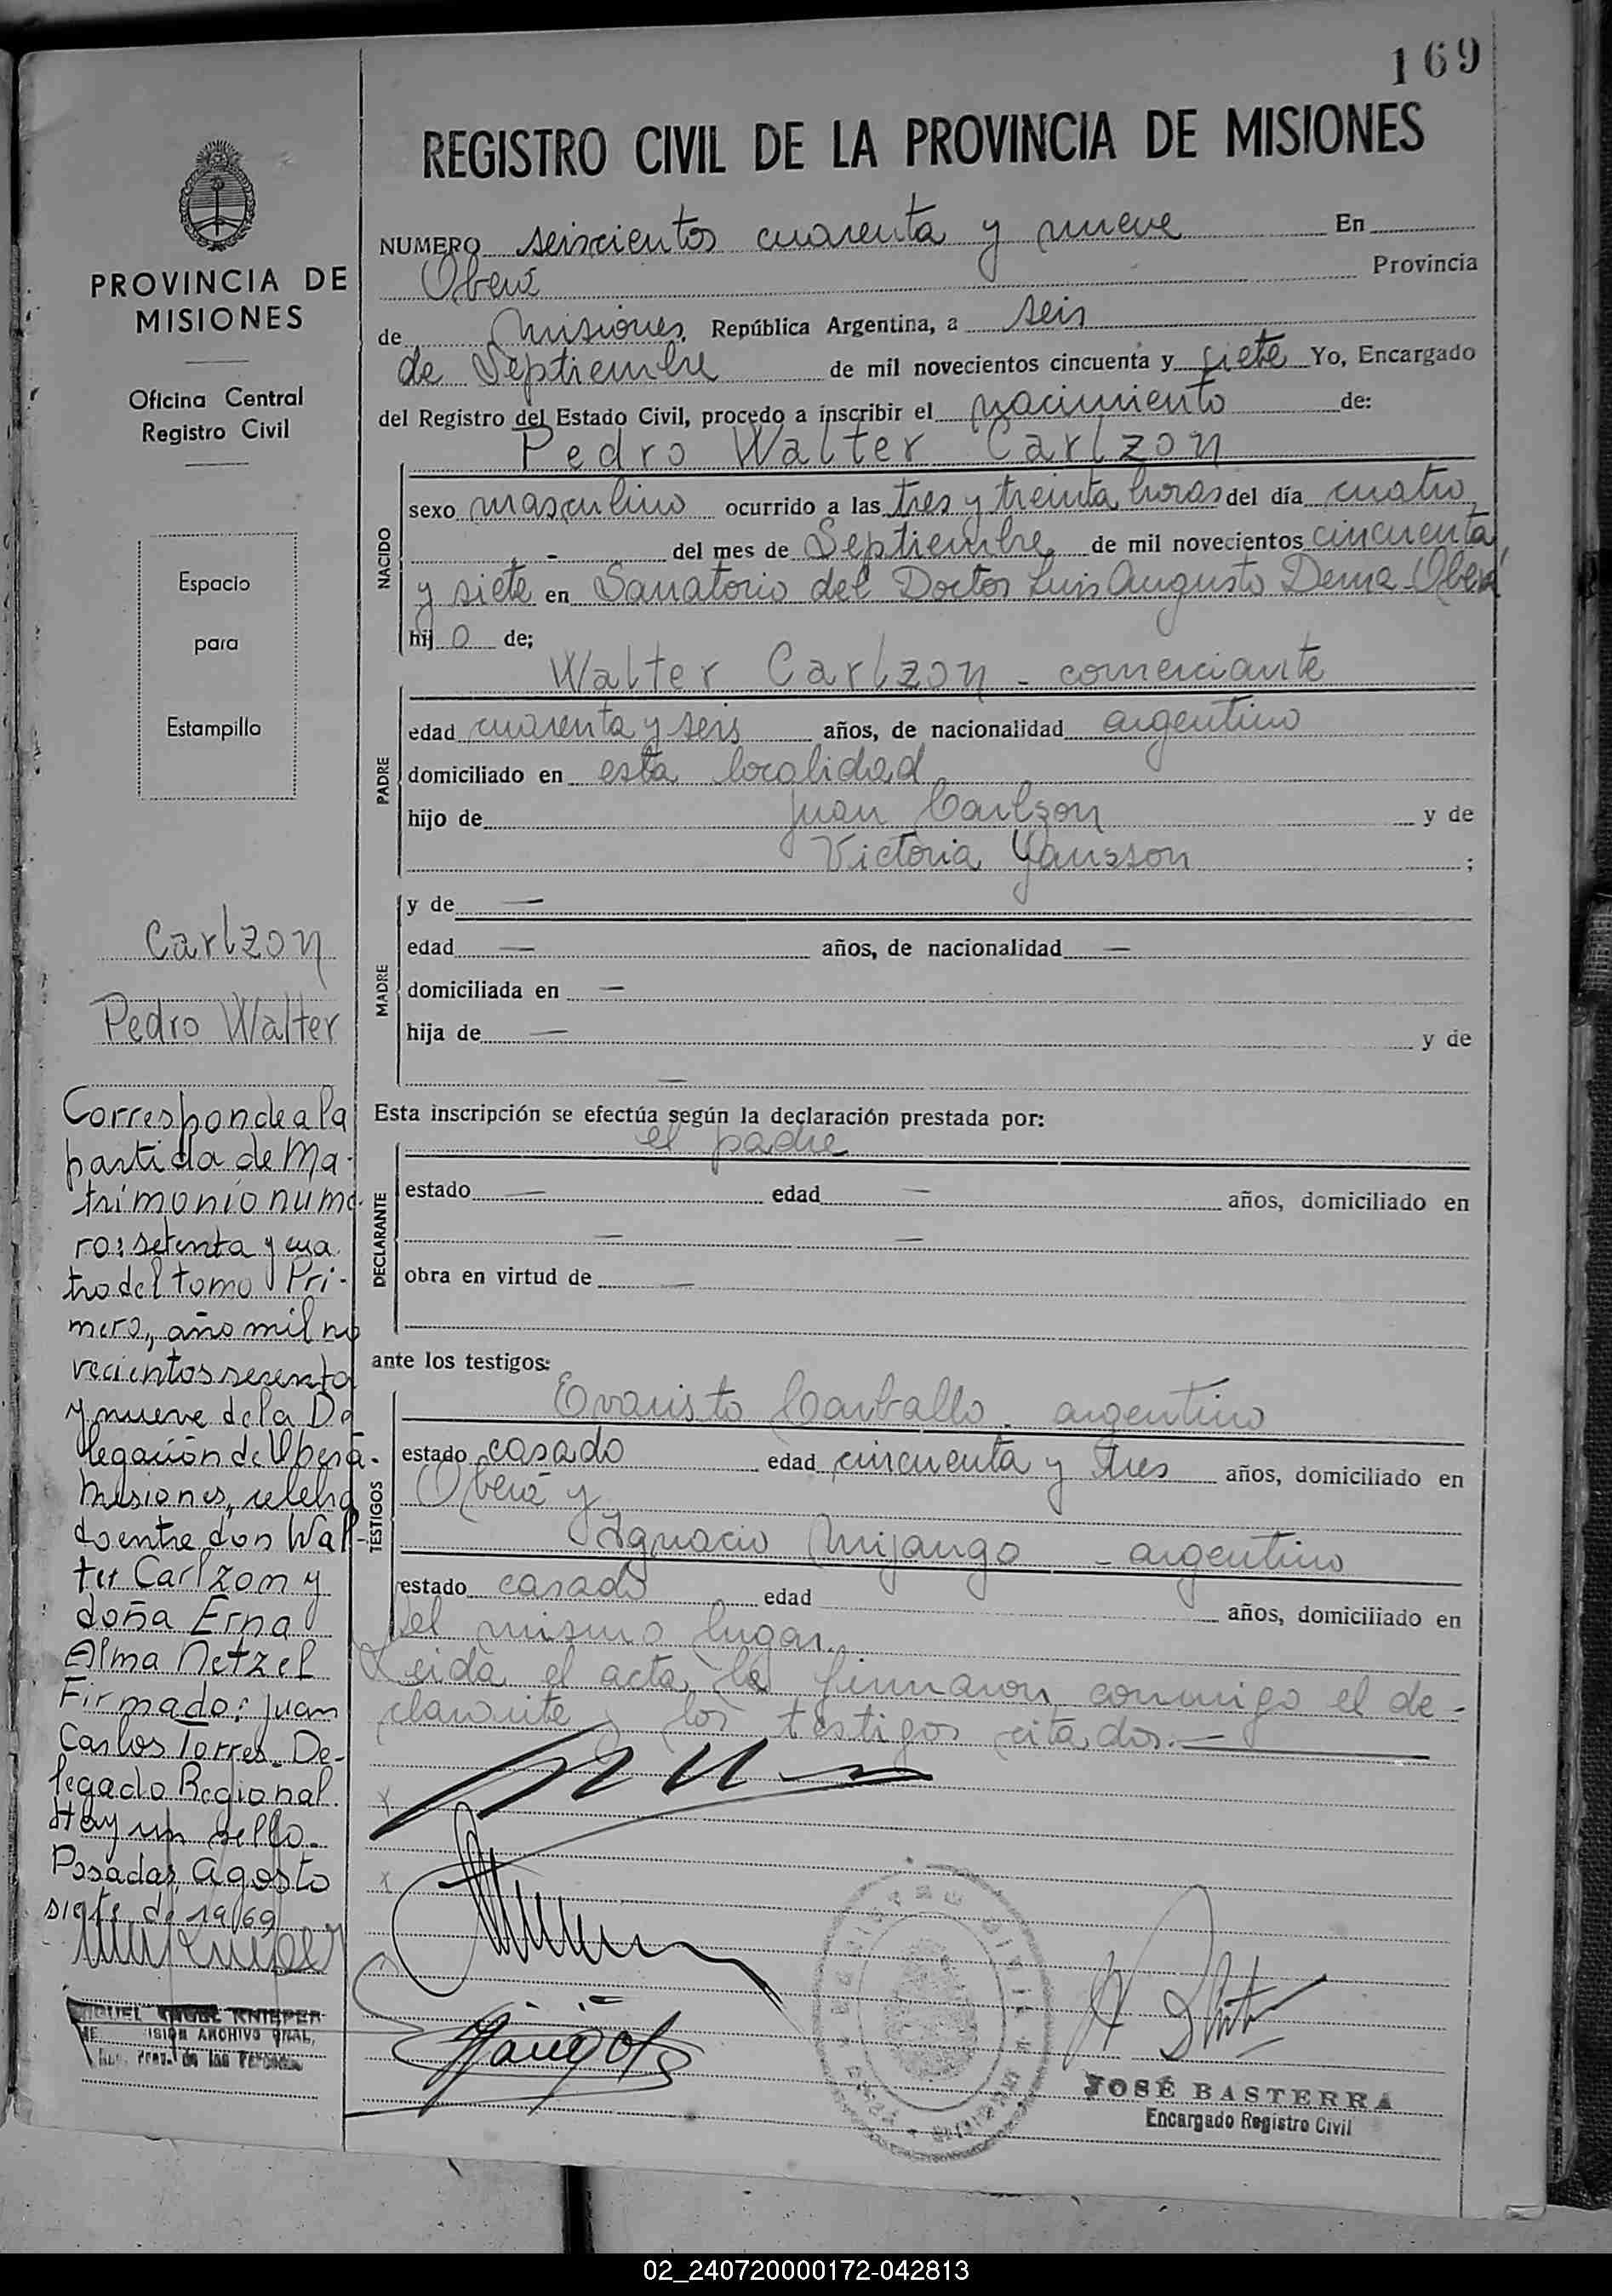 169
REGISTRO CIVIL DE LA PROVINCIA DE MISIONES
PROVINCIA DE
MISIONES
Oficina Central
Registro Civil
Espacio
para
Estampillo
Carlzon
Pedro Walter
Corresponde a la
partida de Ma-
trimonio nume-
ro: setenta y cua
tro del tomo Pri-
mero, año mil no
vecientos sesenta
y nueve de la De
legación de Oberá-
Misiones, celebra
do entre don Wal-
ter Carlzon y
doña Erna
Alma Netzel
Firmado: Juan
Carlos Torres. De-
legado Regional.
Hay un sello.
Posadas, Agosto
siete de 1969
NUMERO seiscientos cuarenta y nueve En
Oberá Provincia
de Misiones, República Argentina, a seis
de Septiembre de mil novecientos cincuenta y siete Yo, Encargado
del Registro del Estado Civil, procedo a inscribir el nacimiento de:
Pedro Walter Carlzon
NACIDO
sexo masculino ocurrido a las tres y treinta horas del día cuatro
- del mes de Septiembre de mil novecientos cincuenta
y siete en Sanatorio del Doctor Luis Augusto Derna - Oberá
hij o de;
Walter Carlzon - comerciante
PADRE
edad cuarenta y seis años, de nacionalidad argentino
domiciliado en esta localidad
hijo de Juan Carlson y de
Victoria Yansson ;
MADRE
y de —
edad — años, de nacionalidad —
domiciliada en —
hija de — y de
—
Esta inscripción se efectúa según la declaración prestada por:
el padre
DECLARANTE
estado — edad — años, domiciliado en
— —
obra en virtud de —
ante los testigos:
TESTIGOS
Evaristo Carballo - argentino
estado casado edad cincuenta y tres años, domiciliado en
Oberá y
Ignacio Mijango - argentino
estado casado edad años, domiciliado en
el mismo lugar.
Leida el acta, la firmaron conmigo el de-
clarante y los testigos citados.—
JOSÉ BASTERRA
Encargado Registro Civil
02_240720000172-042813